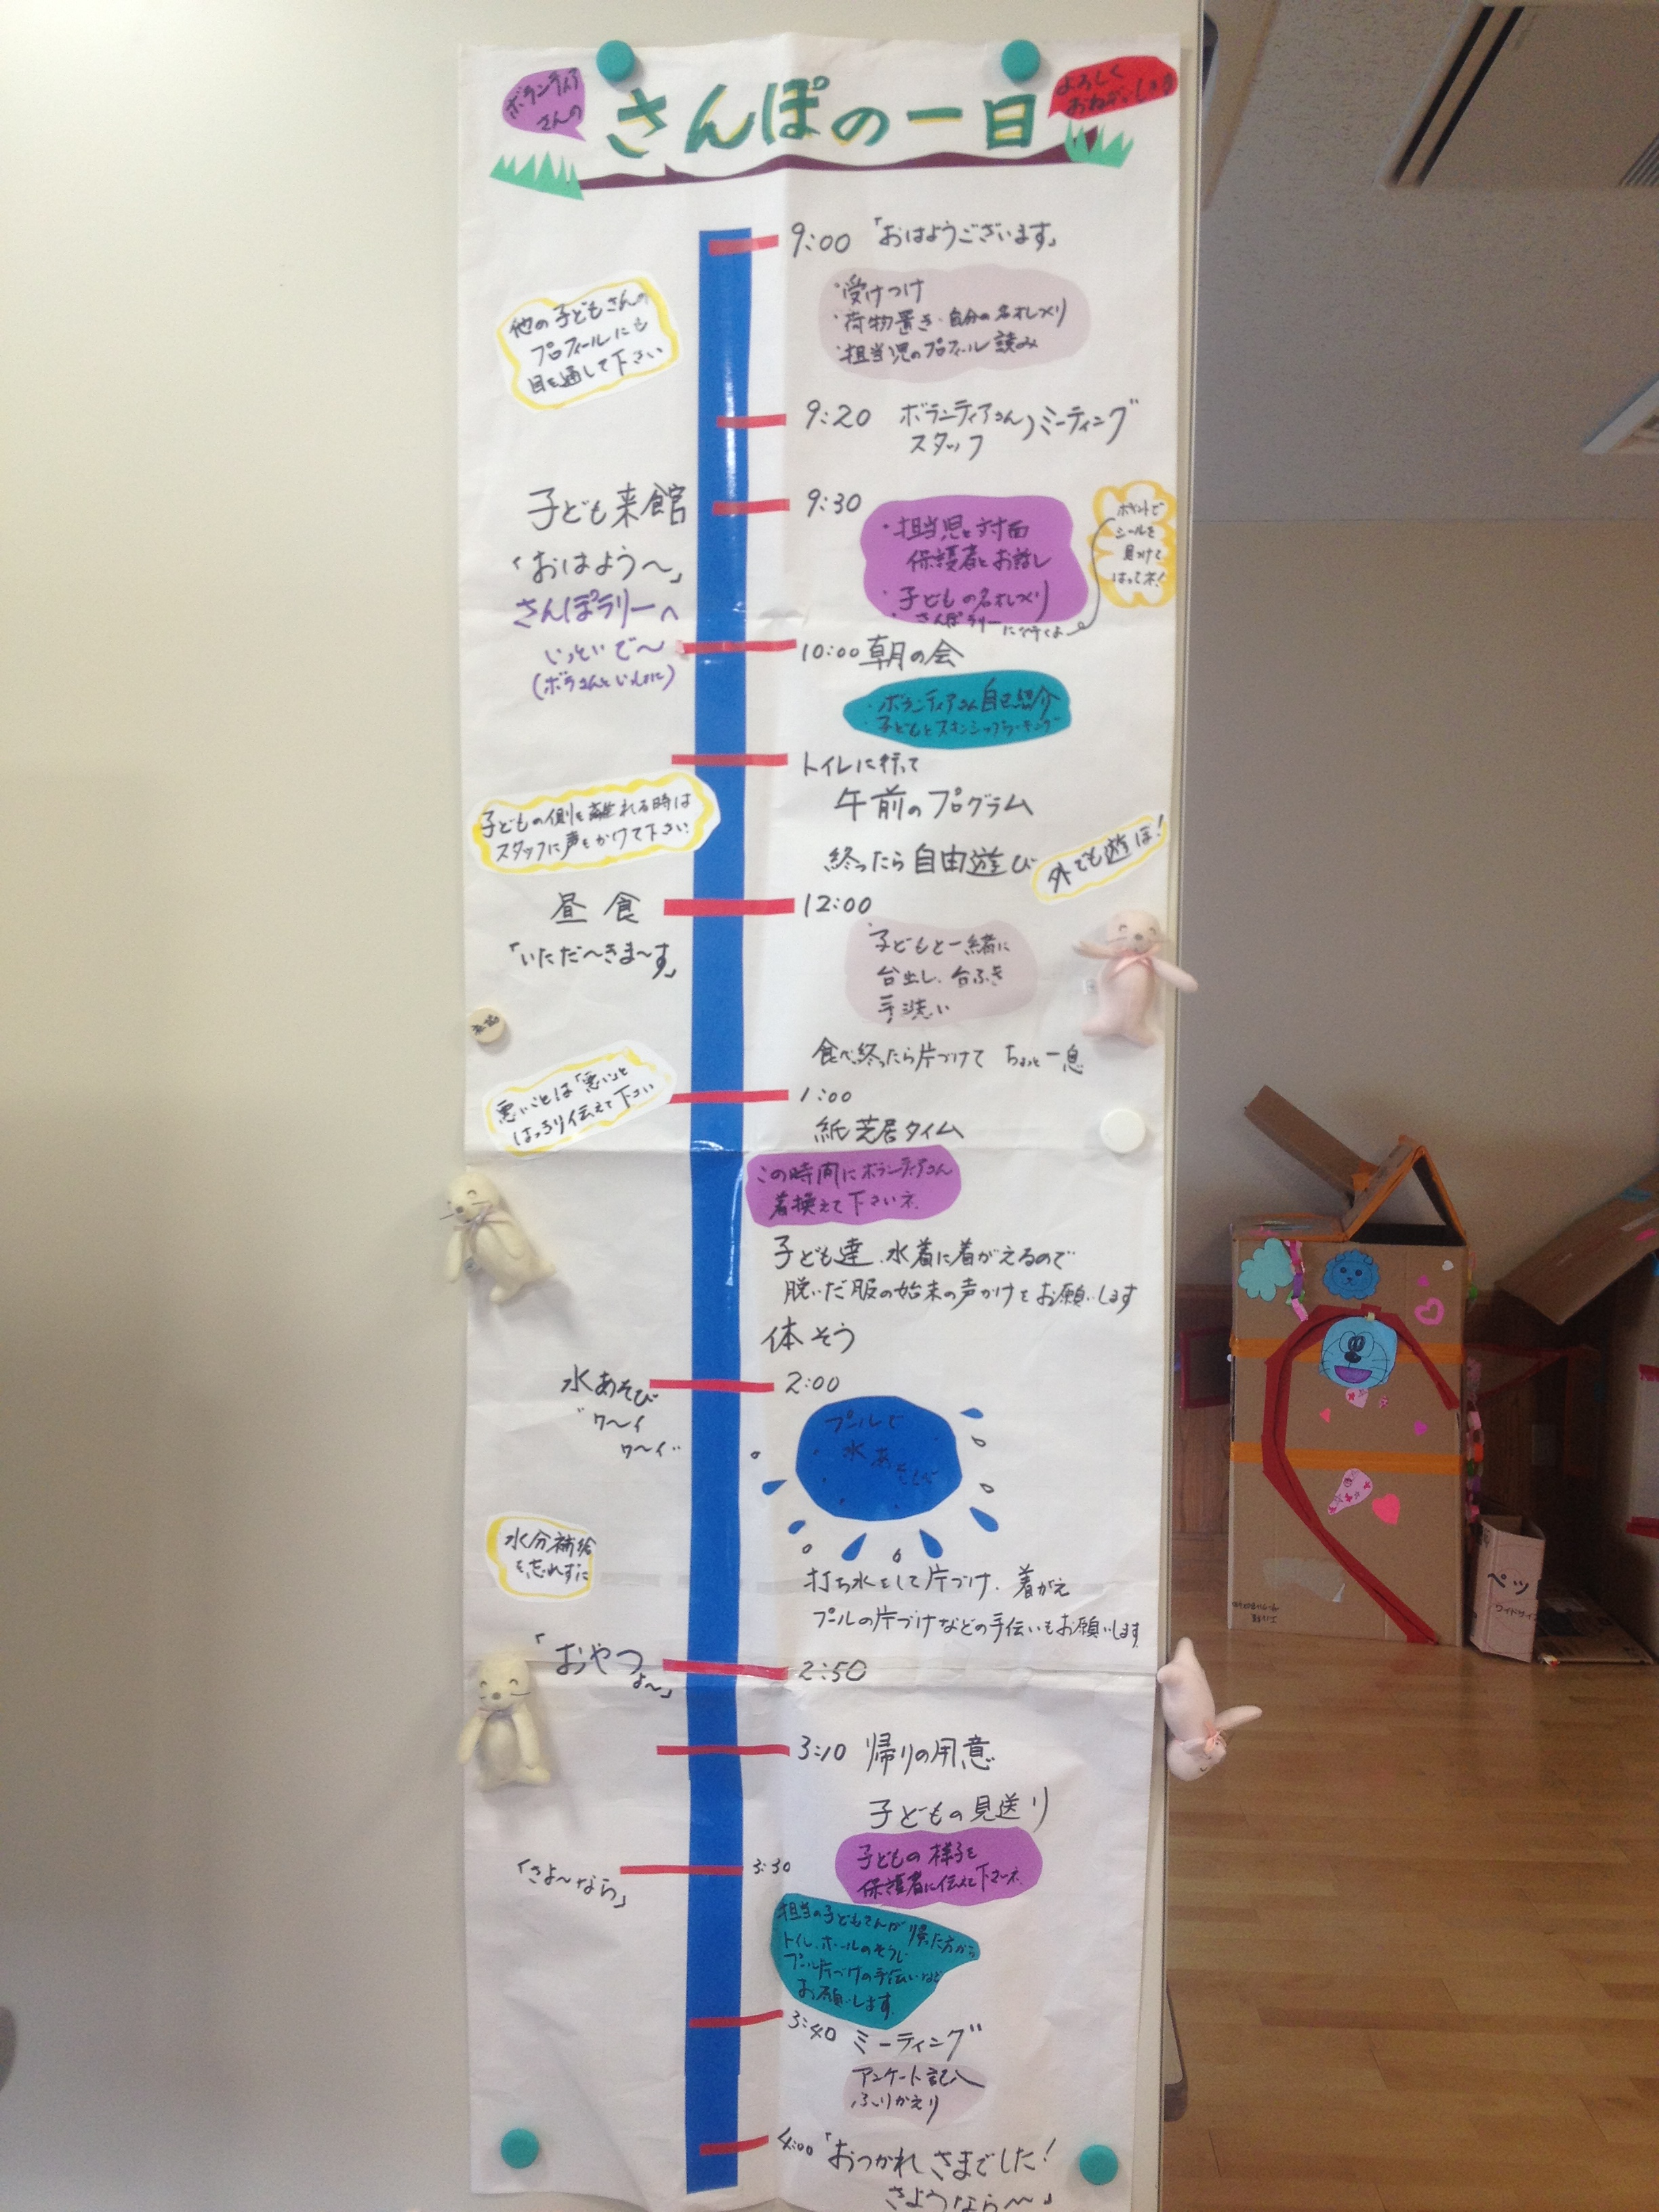 ボランティア
さんの
さんぽの一日
よろしく
おねがいします
9:00 「おはようございます」
・受けつけ
・荷物置き・自分の名札メリ
・担当児のプロフィール読み
他の子どもさんの
プロフィールにも
目を通して下さい
9:20 ボランティアさん ミーティング
スタッフ
子ども来館
9:30
・担当児と対面
保護者とお話し
・子どもの名札メリ
・さんぽラリー
に行くよ
ポイントで
シールを
見つけて
はってネ!
「おはよう〜」
さんぽラリーへ
いっといで〜
(ボラさんといっしょに)
10:00 朝の会
・ボランティアさん自己紹介
・子どもとスキンシップ
トイレに行って
午前のプログラム
終ったら自由遊び
外でも遊ぼ!
子どもの側を離れる時は
スタッフに声をかけて下さい
昼食
「いただ〜きま〜す」
12:00
子どもと一緒に
台出し、台ふき
手洗い
食べ終ったら片づけて ちょっと一息
悪いことは「悪い」と
はっきり伝えて下さい
1:00
紙芝居タイム
この時間にボランティアさん
着換えて下さいネ
子ども達、水着に着がえるので
脱いだ服の始末の声かけをお願いします
体そう
水あそび
ワ〜イ
ワ〜イ
2:00
プールで
水あそび
水分補給
を忘れずに
打ち水をして片づけ、着がえ
プールの片づけなどの手伝いもお願いします
「おやつ
よ〜」
2:50
3:10 帰りの用意
子どもの見送り
子どもの様子を
保護者に伝えて下さいネ
「さよ〜なら」
3:30
担当の子どもさんが帰った方から
トイレ、ホールのそうじ
プール片づけの手伝いなど
お願いします
3:40 ミーティング
アンケート記入
ふりかえり
4:00 「おつかれさまでした!
さようなら〜」
ペッ
ワイドサイ